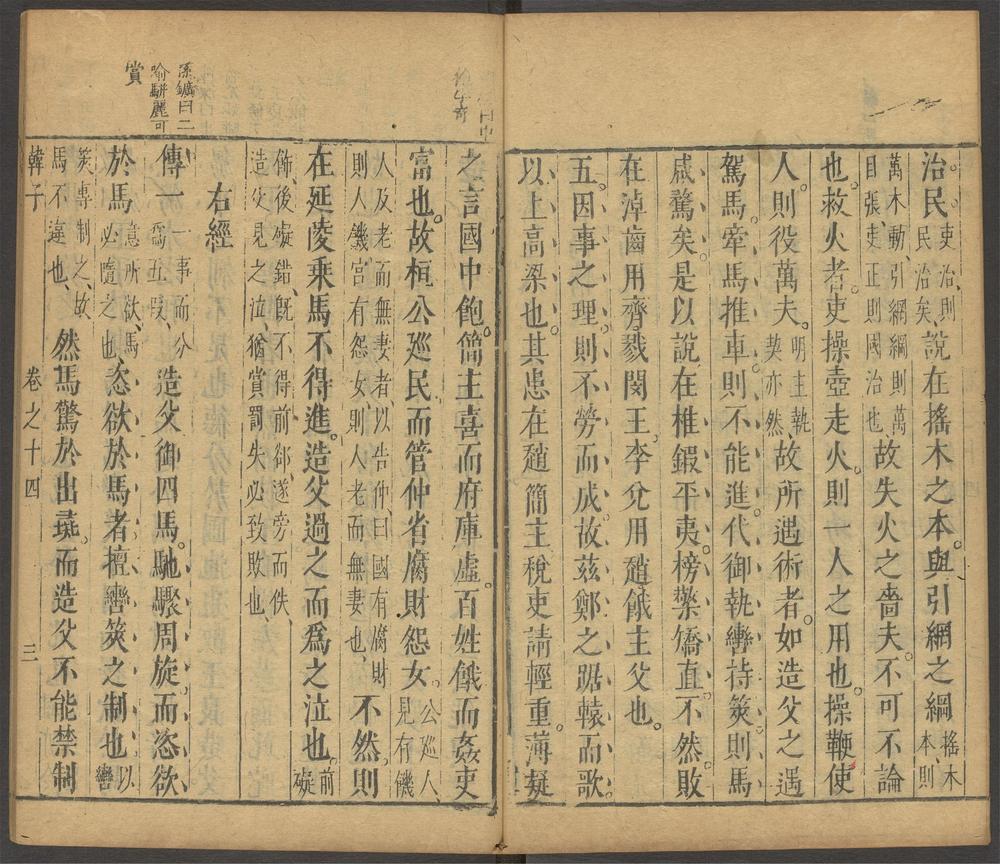 治民吏治則民治矣說在搖木之本與引網之綱搖木本則
萬木動引網綱則萬目張吏正則國治也故失火之嗇夫不可不論
也救火者吏操壺走火則一人之用也操鞭使
人則役萬夫明主執契亦然故所遇術者如造父之遇
駕馬牽馬推車則不能進代御執轡持筴則馬
咸騖矣是以說在椎鍛平夷榜檠矯直不然敗
在淖齒用齊戮閔王李兌用趙餓主父也
五因事之理則不勞而成故茲鄭之踞轅而歌
以上高梁也其患在趙簡主稅吏請輕重薄疑
之言國中飽簡主喜而府庫虛百姓餓而姦吏
富也故桓公巡民而管仲省腐財怨女公巡人見有饑
人及老而無妻者以告仲曰國有腐財則人饑宮有怨女則人老而無妻也不然則
在延陵乘馬不得進造父過之而爲之泣也前礙
飾後礙錯旣不得前郤遂旁而佚造父見之泣猶賞罰失必致敗也
右經
孫鑛曰二
喻駢麗可
賞
傳一一事而分爲五段造父御四馬馳驟周旋而恣欲
於馬意所欲馬必隨之也恣欲於馬者擅轡筴之制也以轡
筴專制之故馬不違也然馬驚於出彘而造父不能禁制
韓子 卷之十四 三